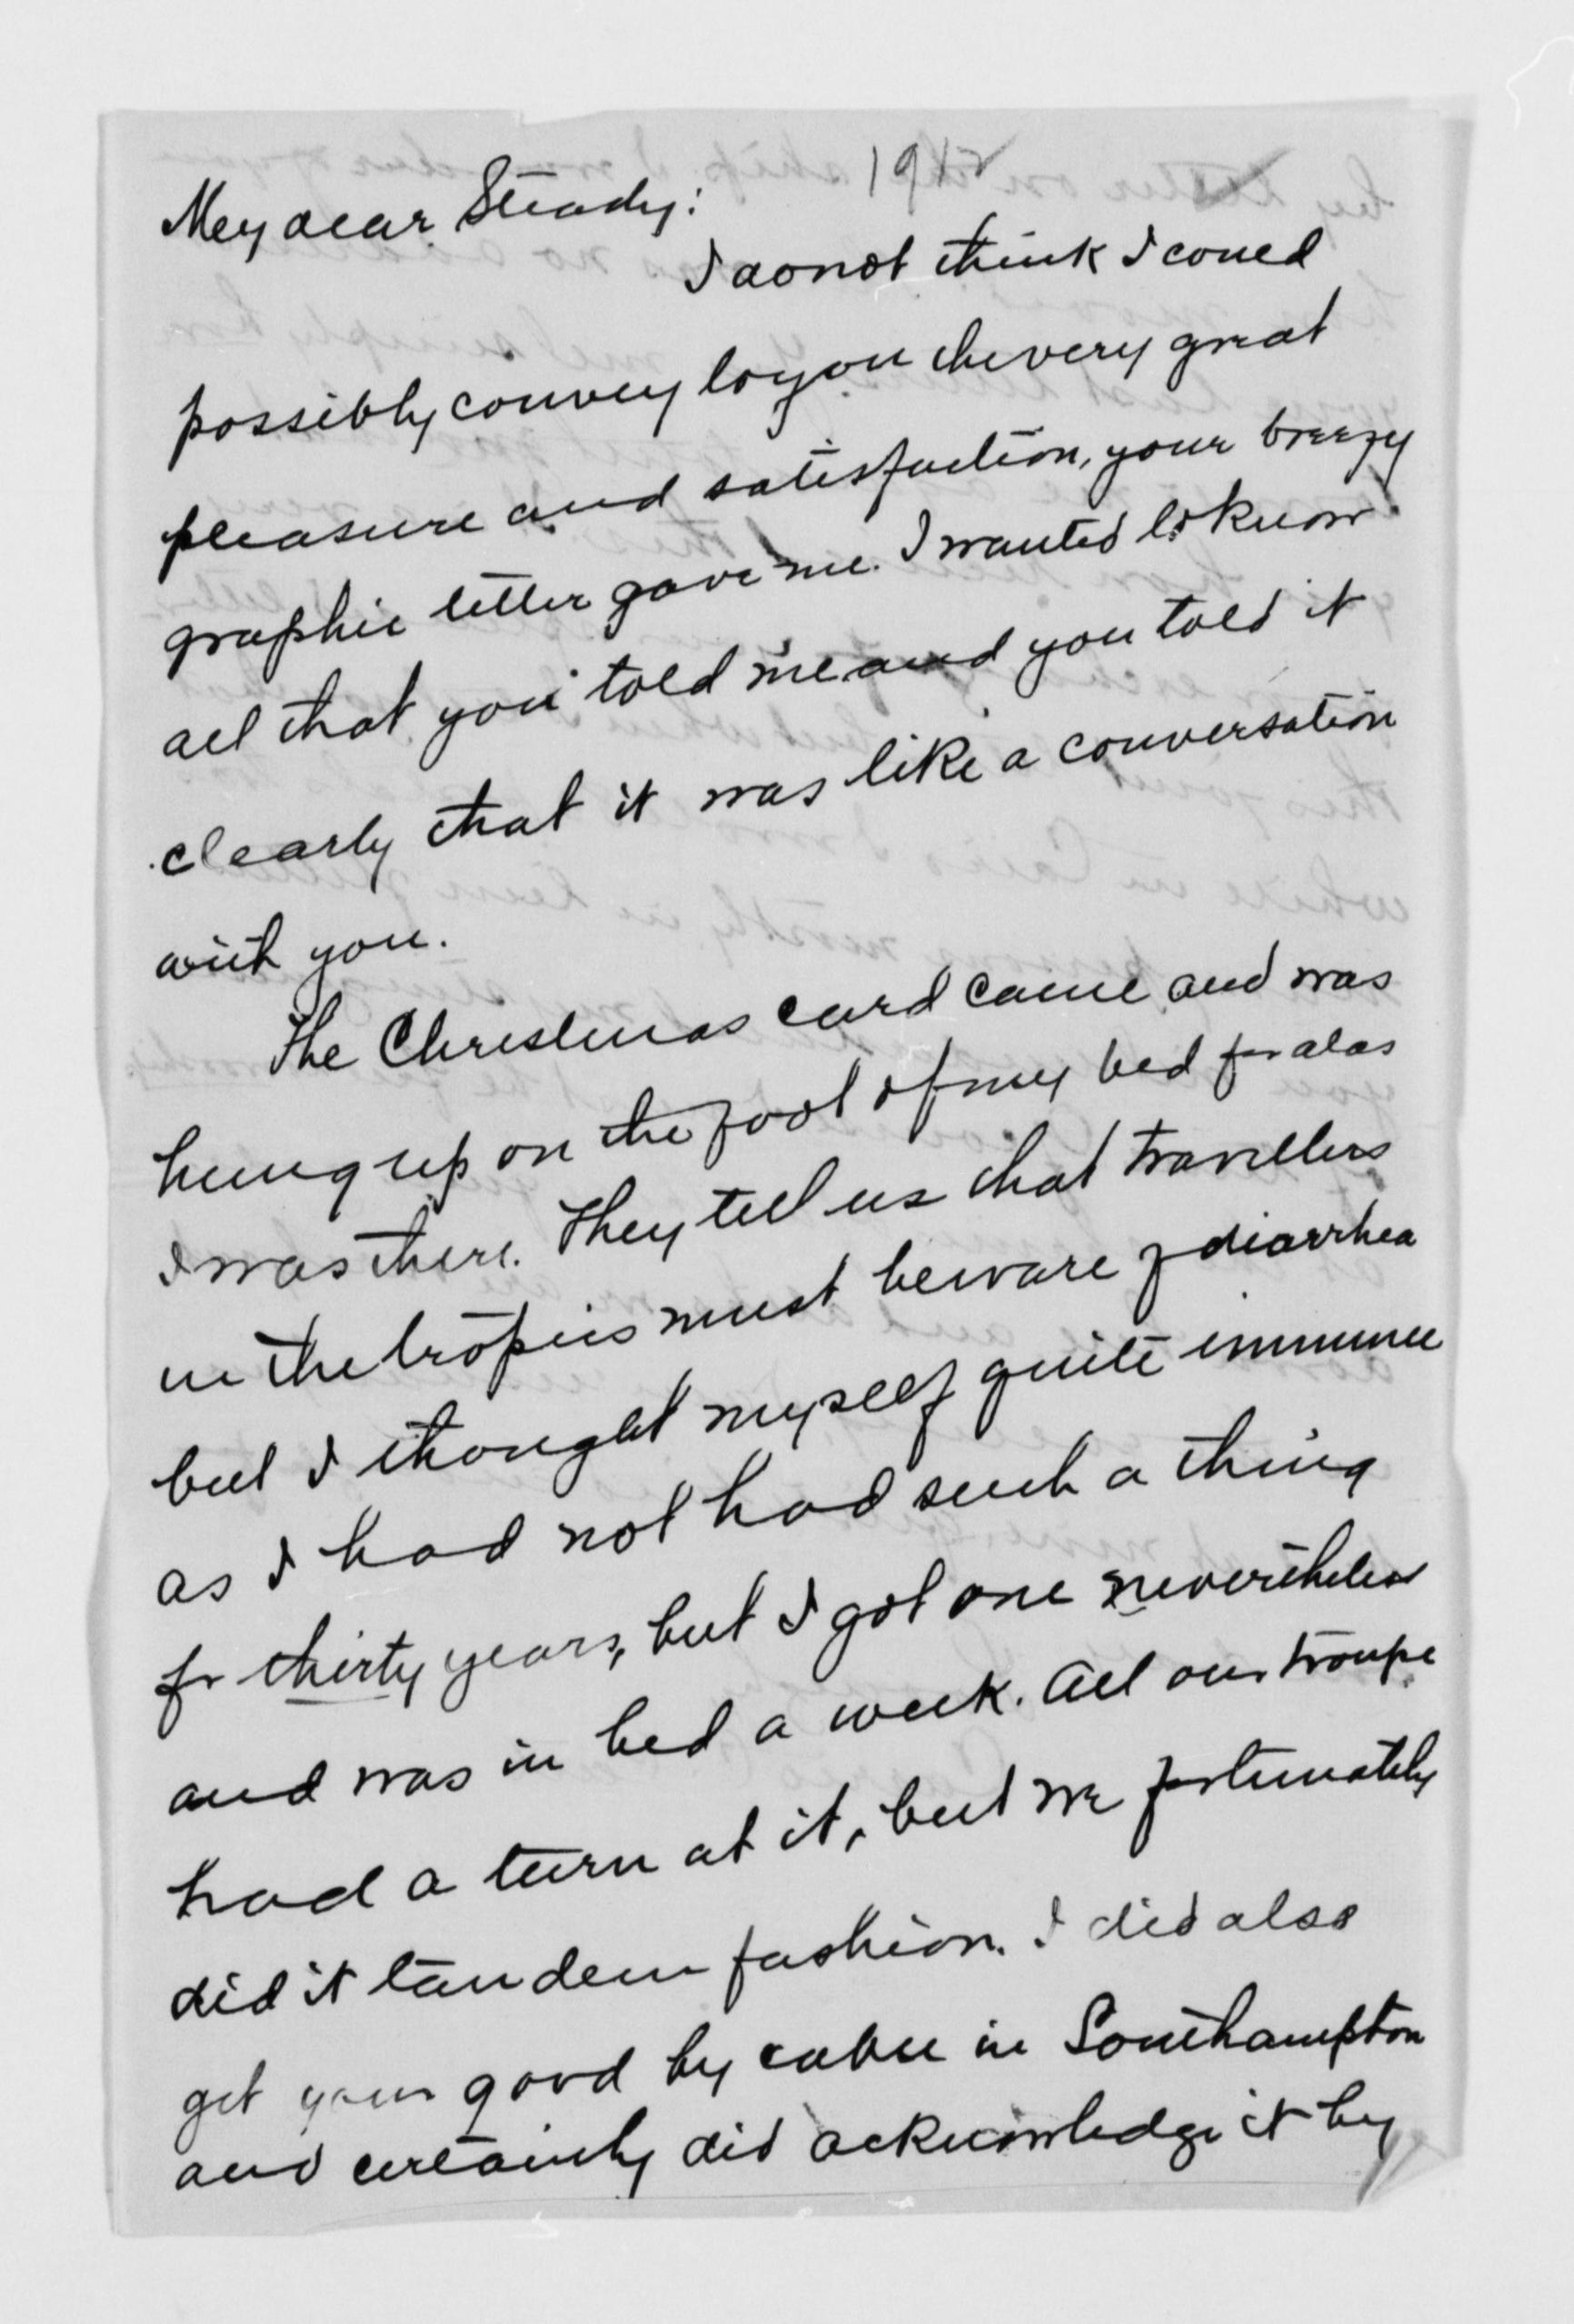 1912
My dear Steady:
I do not think I could
possibly convey to you the very great
pleasure and satisfaction, your breezy
graphic letter gave me. I wanted to know
all that you told me and you told it
clearly that it was like a conversation
with you.
The Christmas card came and was
hung up on the foot of my bed for alas
I was there. They tell us that travellers
in the tropics must beware of diarrhea
but I thought myself quite immune
as I had not had such a thing
for thirty years, but I got one nevertheless
and was in bed a week. All our troupe
had a turn at it, but we fortunately
did it tandem fashion. I did also
get your good by cable in Southampton
and certainly did acknowledge it by